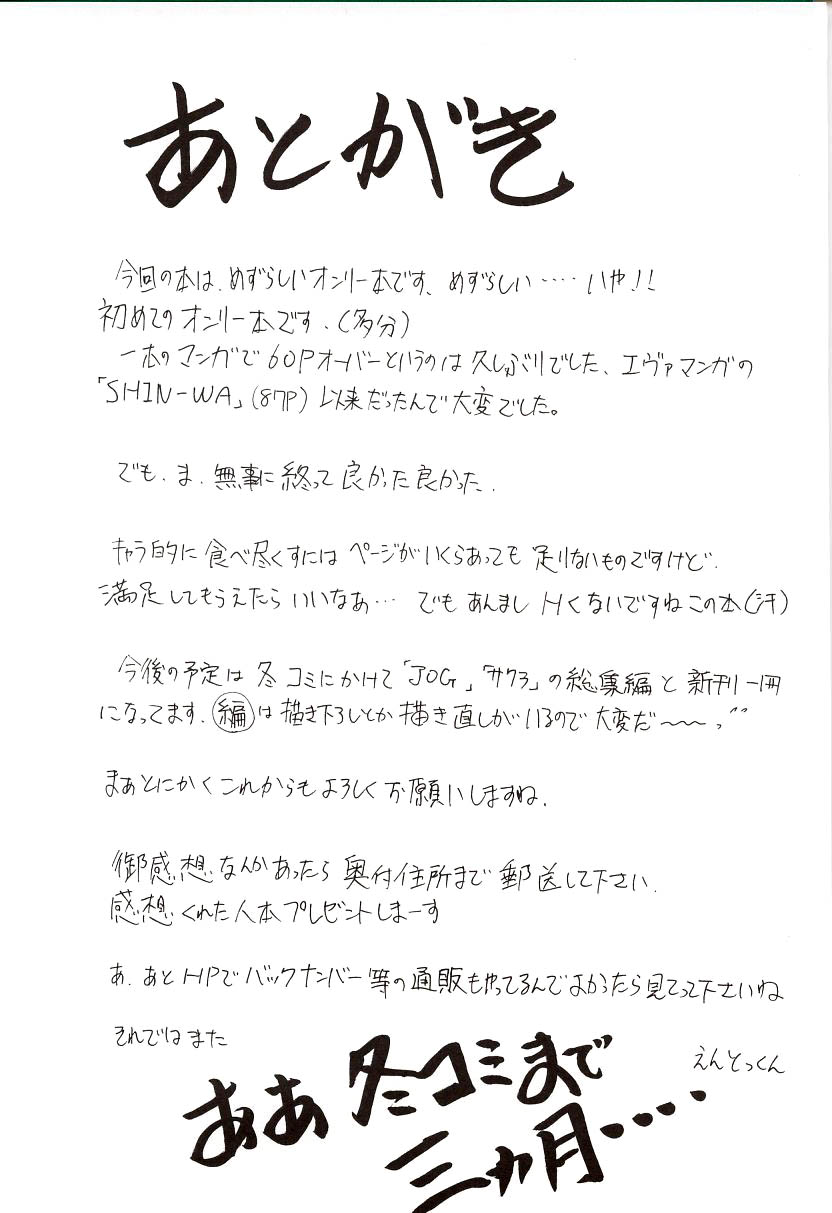 あとがき
今回の本は、めずらしいオンリー本です、めずらしい‥‥いや!!
初めてのオンリー本です、(多分)
一本のマンガで60Pオーバーというのは久しぶりでした、エヴァマンガの
「SHIN-WA」(87P)以来だったんで大変でした。
でも、ま、無事に終って良かった良かった、
キャラ的に食べ尽くすにはページがいくらあっても足りないものですけど、
満足してもらえたらいいなぁ… でもあんましHくないですねこの本(汗)
今後の予定は冬コミにかけて「JOG」「サクラ」の総集編と新刊一冊
になってます、編は描き下ろしとか描き直しがいるので大変だ〜〜っ゛
まぁとにかくこれからもよろしくお願いしますね、
御感想なんかあったら奥付住所まで郵送して下さい、
感想くれた人本プレゼントしまーす
あ、あとHPでバックナンバー等の通販もやってるんでよかったら見てって下さいね
それではまた
えんとっくん
ああ冬コミまで
三ヵ月‥‥